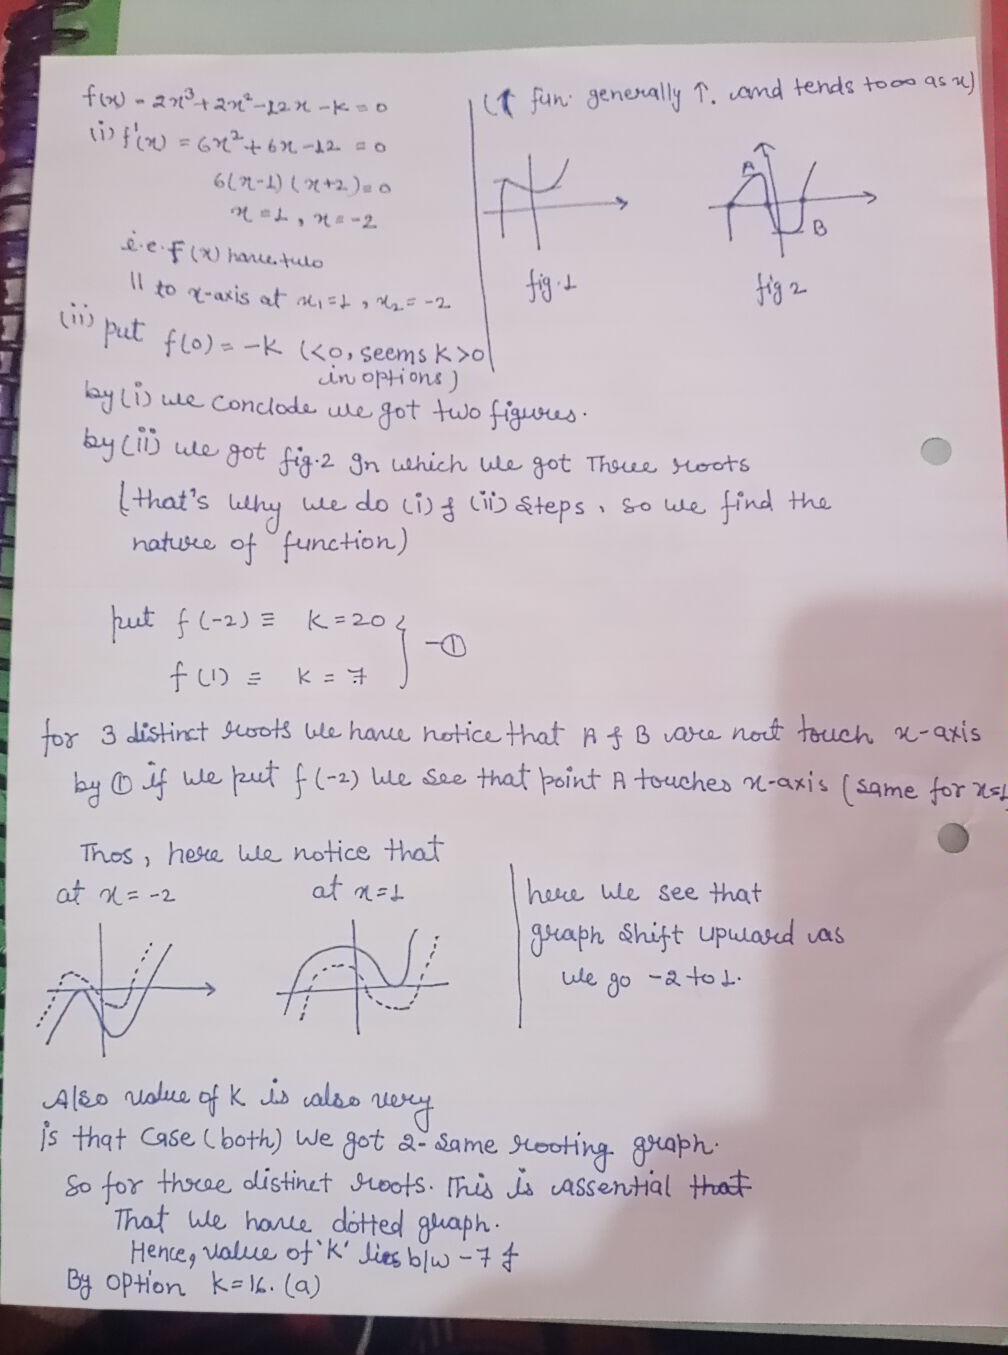 f(x) = 2x³+2x²-12x-K=0
(i) f'(x) = 6x²+6x-12 =0
6(x-1)(x+2)=0
x=1, x=-2
i.e. f(x) have two
|| to x-axis at x₁=1, x₂=-2
(ii) put f(0)=-K (<0, seems K>0
in options)
(↑ fun. generally ↑. and tends to ∞ as x)
A
B
fig.1
fig 2
by (i) we conclode we got two figures.
by (ii) we got fig.2 In which we got Three roots
(that's why we do (i) & (ii) steps, so we find the
nature of function)
put f(-2) ≡ K=20
f(1) ≡ K=-7
} -①
for 3 distinct roots we have notice that A & B are not touch x-axis
by ① if we put f(-2) we see that point A touches x-axis (same for x=1
Thos, here we notice that
at x=-2
at x=1
here we see that
graph shift upward as
we go -2 to 1.
Also value of K is also very
is that Case (both) we got 2-same rooting graph.
So for three distinct roots. This is assential that
That we have dotted graph.
Hence, value of 'K' lies b/w -7 &
By option K=16. (a)